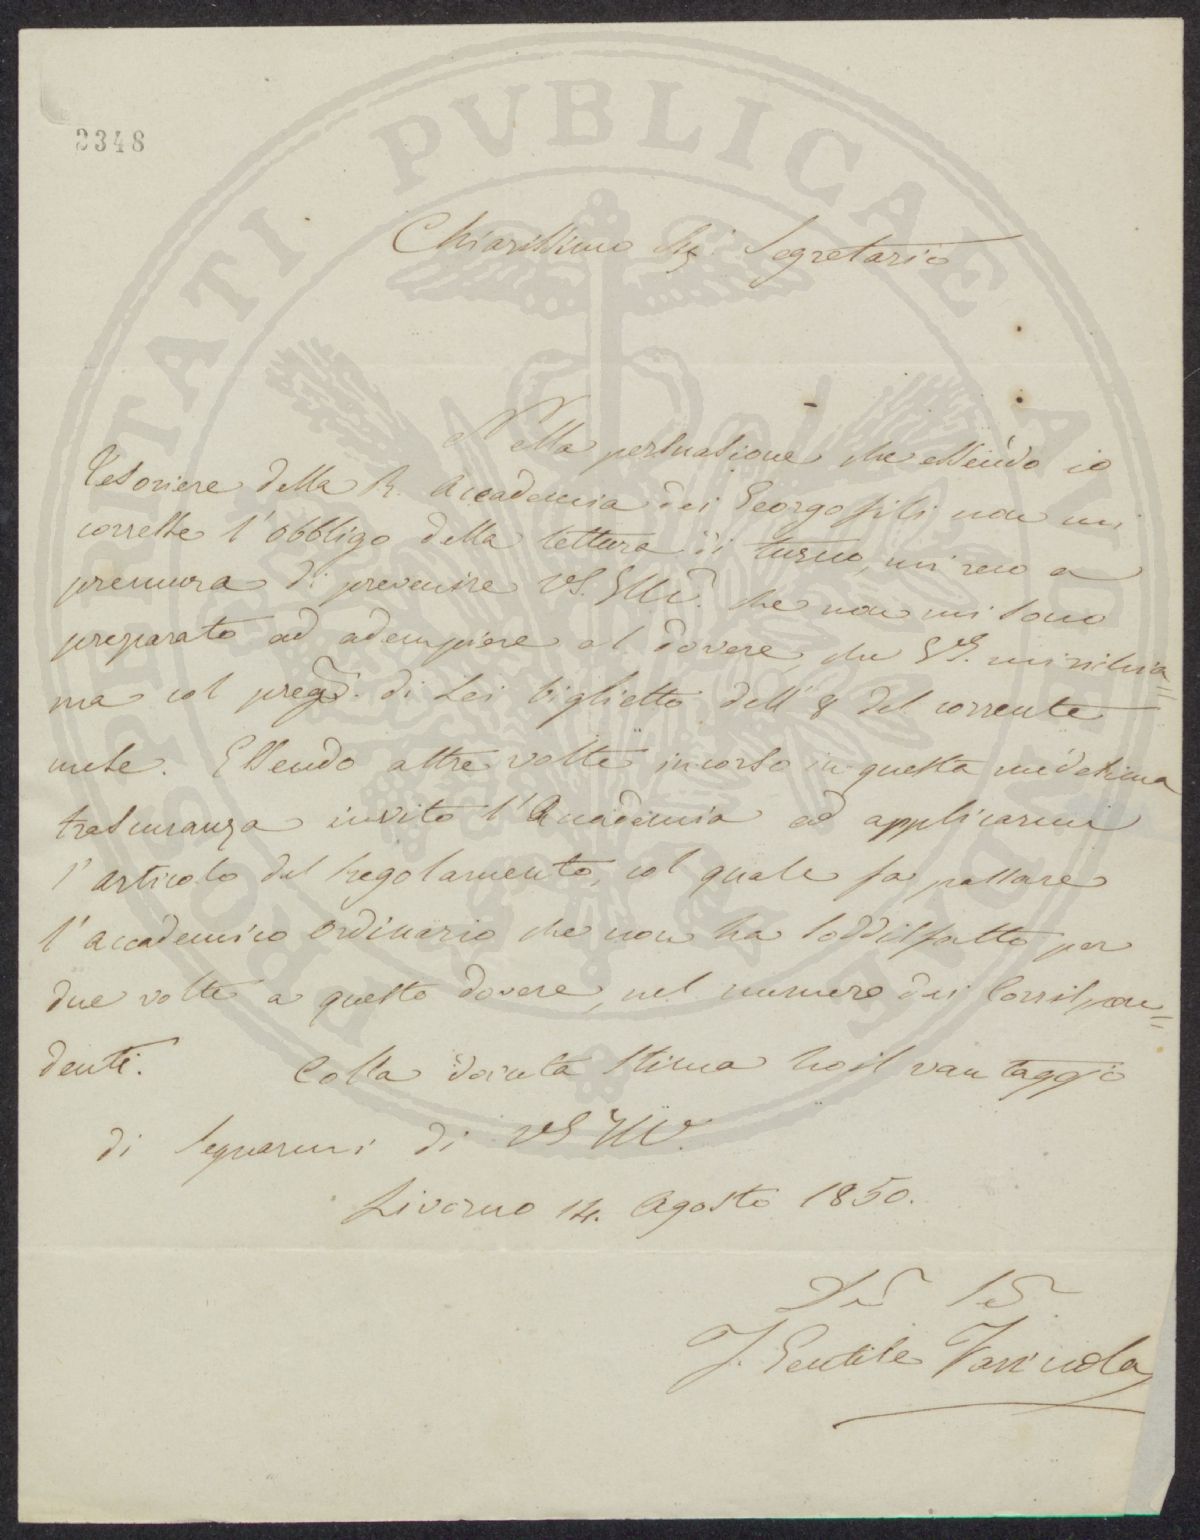 2348
PROSPERITATI PVBLICAE AVGENDAE
Chiarissimo Sig. Segretario
Nella persuasione che essendo io
Tesoriere della R. Accademia dei Georgofili non mi
corresse l'obbligo della lettura di turno, mi reco a
premura di prevenire VS. Ill. che non mi sono
preparato ad adempiere al dovere, che VS. mi richia=
ma col preg. di Lei biglietto dell' 8 del corrente
mese. Essendo altre volte incorso in questa medesima
trascuranza invito l'Accademia ad applicarmi
l'articolo del Regolamento, col quale fa passare
l'Accademico Ordinario che non ha soddisfatto per
due volte a questo dovere, nel numero dei Corrispon=
denti. Colla dovuta stima ho il vantaggio
di segnarmi di VS Ill.
Livorno 14. Agosto 1850.
Gentile Farinola